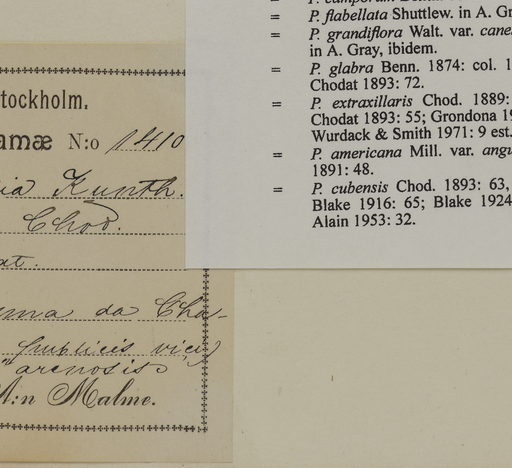 P. flabellata Shuttlew. in A. Gr
= P. grandiflora Walt. var. canes
in A. Gray, ibidem.
= P. glabra Benn. 1874: col. 1
Chodat 1893: 72.
= P. extraxillaris Chod. 1889:
Chodat 1893: 55; Grondona 19
Wurdack & Smith 1971: 9 est.
= P. americana Mill. var. angu
1891: 48.
= P. cubensis Chod. 1893: 63,
Blake 1916: 65; Blake 1924
Alain 1953: 32.
tockholm.
amæ N:o 1410
ia Kunth.
Chod.
at.
ema da Cha-
publicis vicis
"arenosis"
M:n Malme.